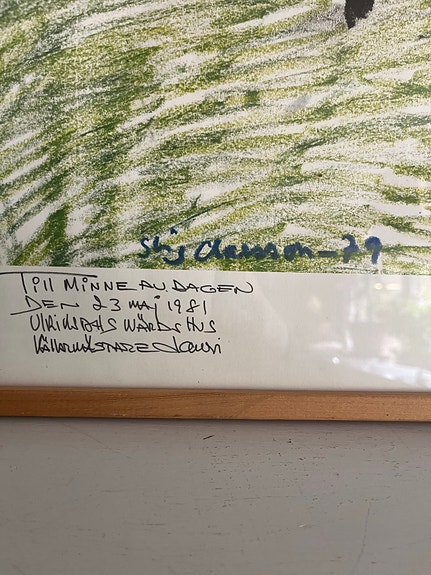 Stig Claesson-79
TILL MINNE AV DAGEN
DEN 23 maj 1981
ULRIKSDALS WÄRDSHUS
KÄLLARMÄSTARE